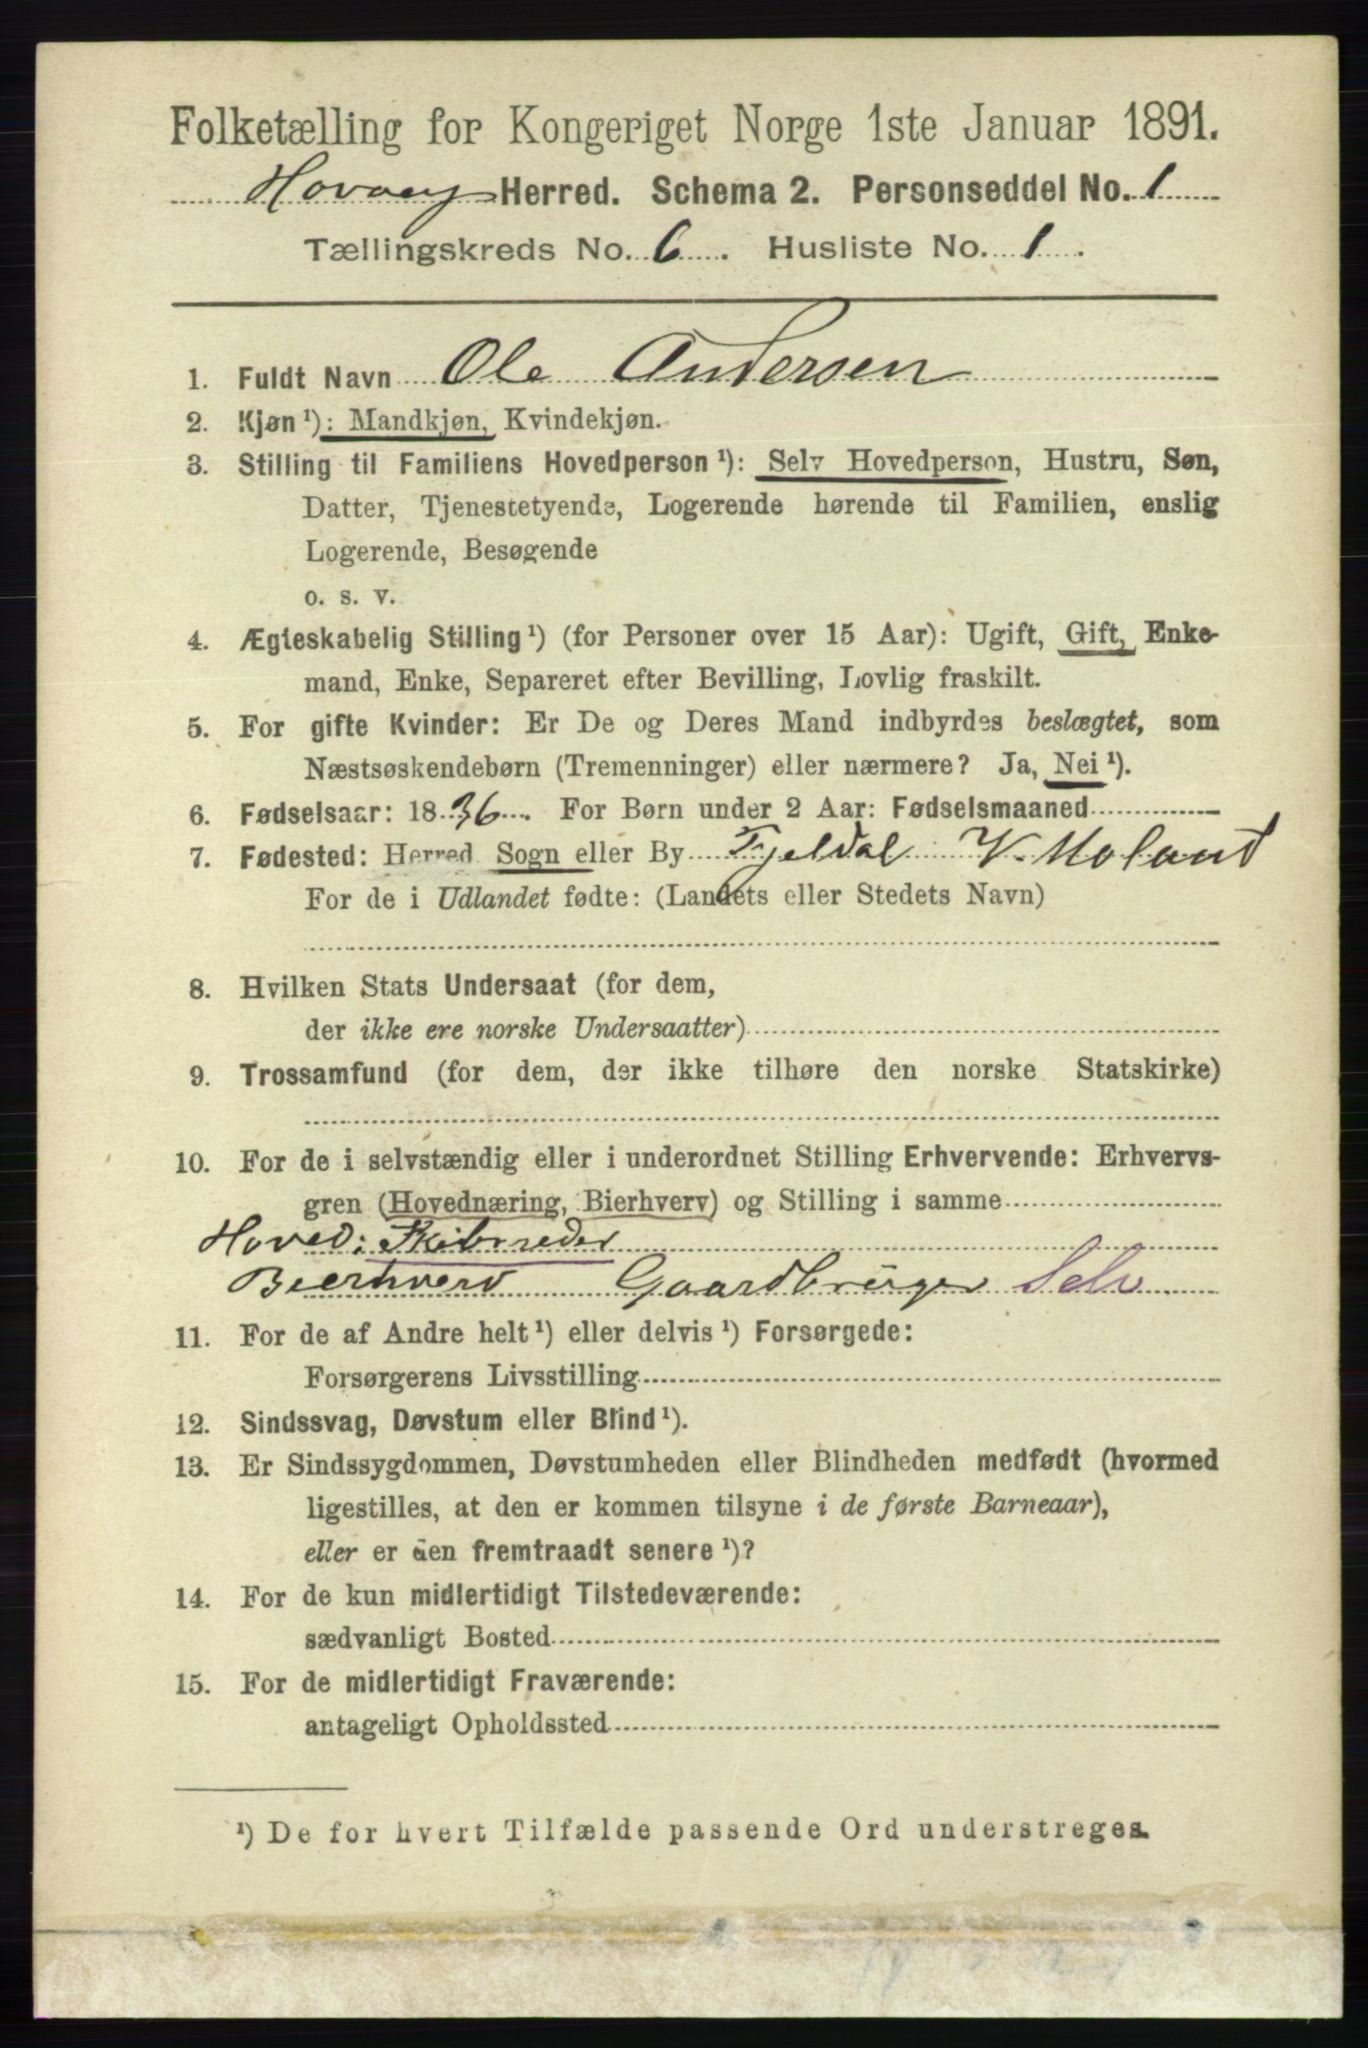 Folketælling for Kongeriget Norge 1ste Januar 1891.
Hovaag Herred. Schema 2. Personseddel No. 1
Tællingskreds No. 6. Husliste No. 1.
1. Fuldt Navn Ole Andersen
2. Kjøn ¹): Mandkjøn, Kvindekjøn.
3. Stilling til Familiens Hovedperson ¹): Selv Hovedperson, Hustru, Søn,
Datter, Tjenestetyende, Logerende hørende til Familien, enslig
Logerende, Besøgende
o. s. v.
4. Ægteskabelig Stilling ¹) (for Personer over 15 Aar): Ugift, Gift, Enke-
mand, Enke, Separeret efter Bevilling, Lovlig fraskilt.
5. For gifte Kvinder: Er De og Deres Mand indbyrdes beslægtet, som
Næstsøskendebørn (Tremenninger) eller nærmere? Ja, Nei ¹).
6. Fødselsaar: 1836. For Børn under 2 Aar: Fødselsmaaned
7. Fødested: Herred Sogn eller By Fjeldal V. Moland
For de i Udlandet fødte: (Landets eller Stedets Navn)
8. Hvilken Stats Undersaat (for dem,
der ikke ere norske Undersaatter)
9. Trossamfund (for dem, der ikke tilhøre den norske Statskirke)
10. For de i selvstændig eller i underordnet Stilling Erhvervende: Erhvervs-
gren (Hovednæring, Bierhverv) og Stilling i samme
Hoved: Skibsreder
Bierhverv Gaardbruger Selv.
11. For de af Andre helt ¹) eller delvis ¹) Forsørgede:
Forsørgerens Livsstilling
12. Sindssvag, Døvstum eller Blind ¹).
13. Er Sindssygdommen, Døvstumheden eller Blindheden medfødt (hvormed
ligestilles, at den er kommen tilsyne i de første Barneaar),
eller er den fremtraadt senere ¹)?
14. For de kun midlertidigt Tilstedeværende:
sædvanligt Bosted
15. For de midlertidigt Fraværende:
antageligt Opholdssted
¹) De for hvert Tilfælde passende Ord understreges.